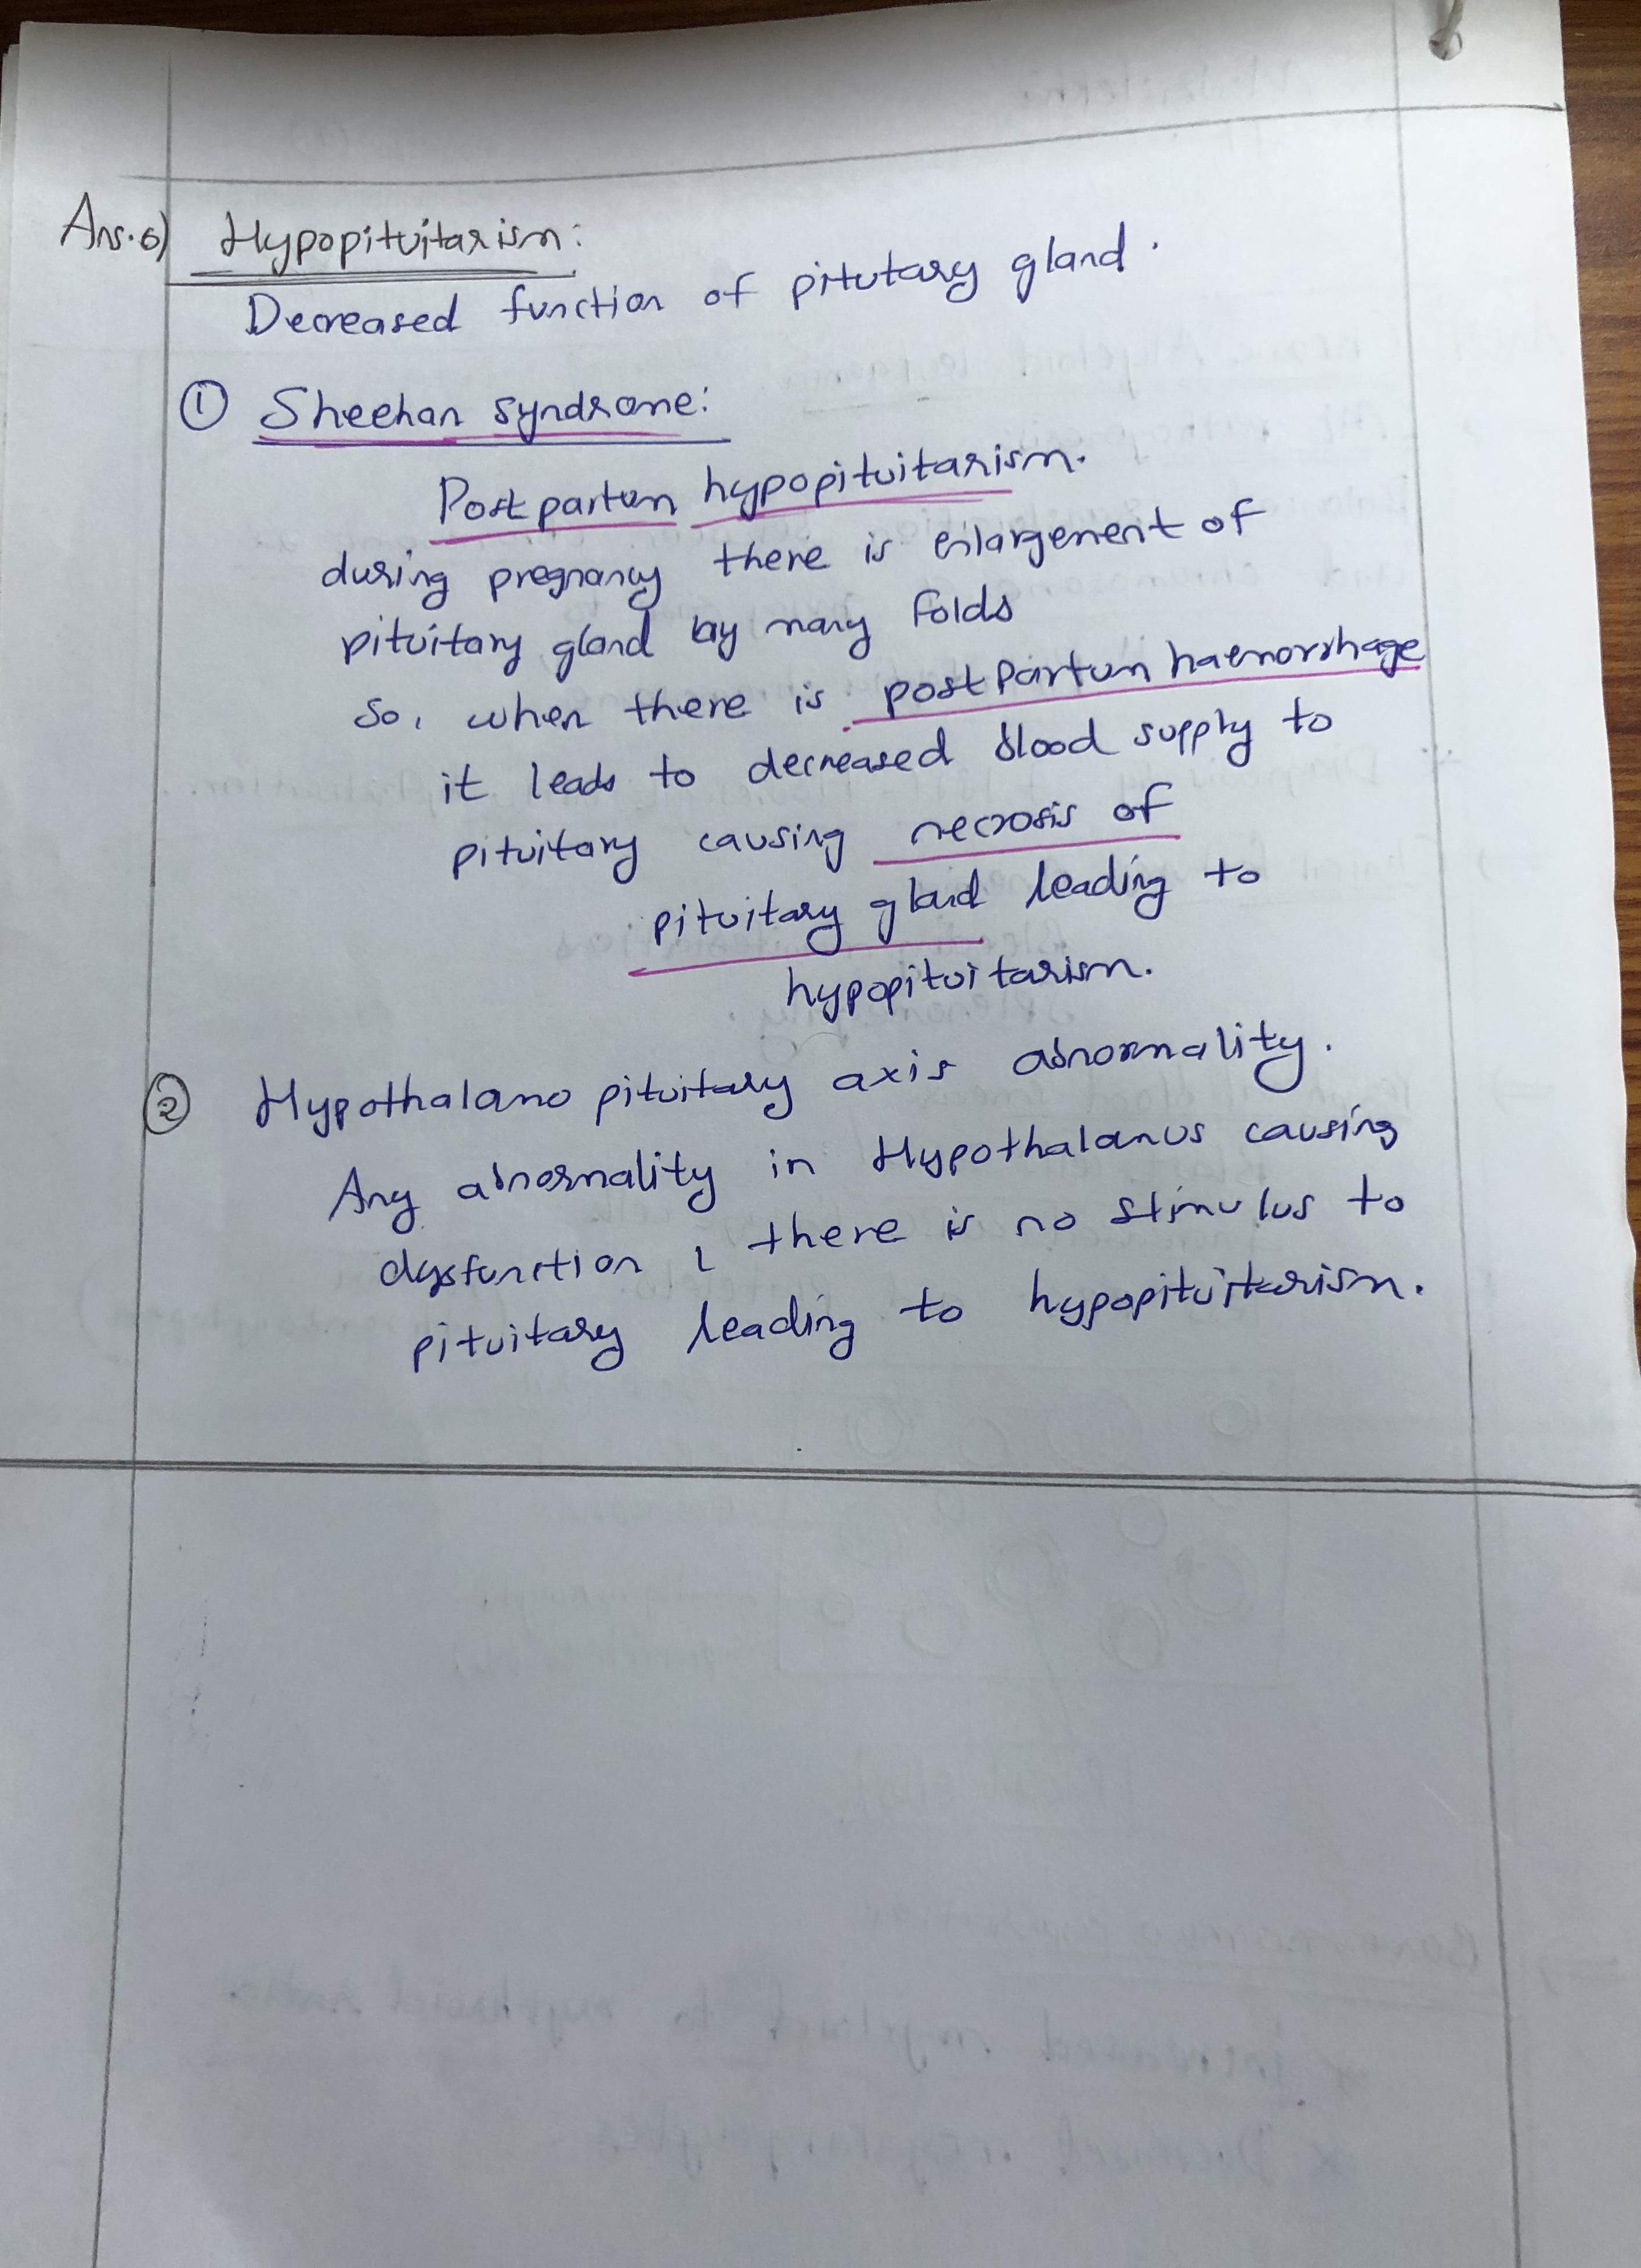 Ans.6) Hypopituitarism:
Decreased function of pitutary gland.
① Sheehan syndrome:
Postpartum hypopituitarism.
during pregnancy there is enlargement of
pituitary gland by many folds
So, when there is postpartum haemorrhage
it leads to decreased blood supply to
pituitary causing necrosis of
pituitary gland leading to
hypopituitarism.
② Hypothalamo pituitary axis abnormality.
Any abnormality in Hypothalamus causing
dysfunction, there is no stimulus to
pituitary leading to hypopituitarism.